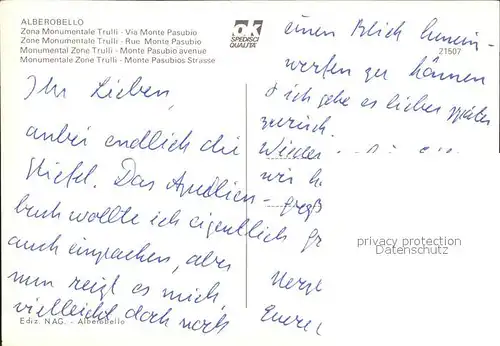 ALBEROBELLO
Zona Monumentale Trulli - Via Monte Pasubio
Zone Monumentale Trulli - Rue Monte Pasubio
Monumental Zone Trulli - Monte Pasubio avenue
Monumentale Zone Trulli - Monte Pasubios Strasse
OK
SPEDISCI
QUALITA'
21507
Ihr Lieben,
anbei endlich die
Stiefel. Das Apulien-
buch wollte ich eigentlich
auch einpacken, aber
nun reizt es mich,
vielleicht doch noch
einen Blick hinein-
werfen zu können
& ich gebe es lieber später
zurück.
wir h
groß
gr
Herzl
Eure
privacy protection
Datenschutz
Ediz. NAG. - Alberobello